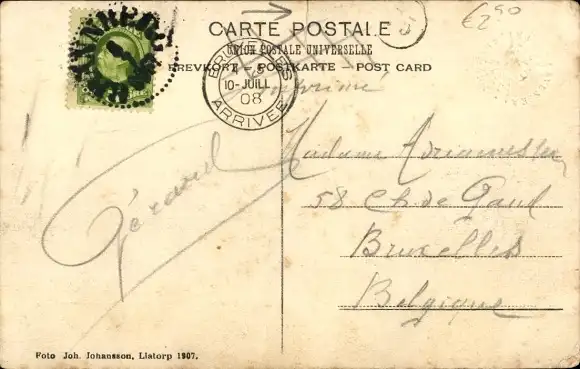 €2,90
CARTE POSTALE
UNION POSTALE UNIVERSELLE
BREVKORT - POSTKARTE - POST CARD
BRUXELLES
10-JUILL
08
ARRIVEE
Imprimé
Madame
58 Ch de Gand
Bruxelles
Belgique
Gérard
Foto Joh. Johansson, Liatorp 1907.